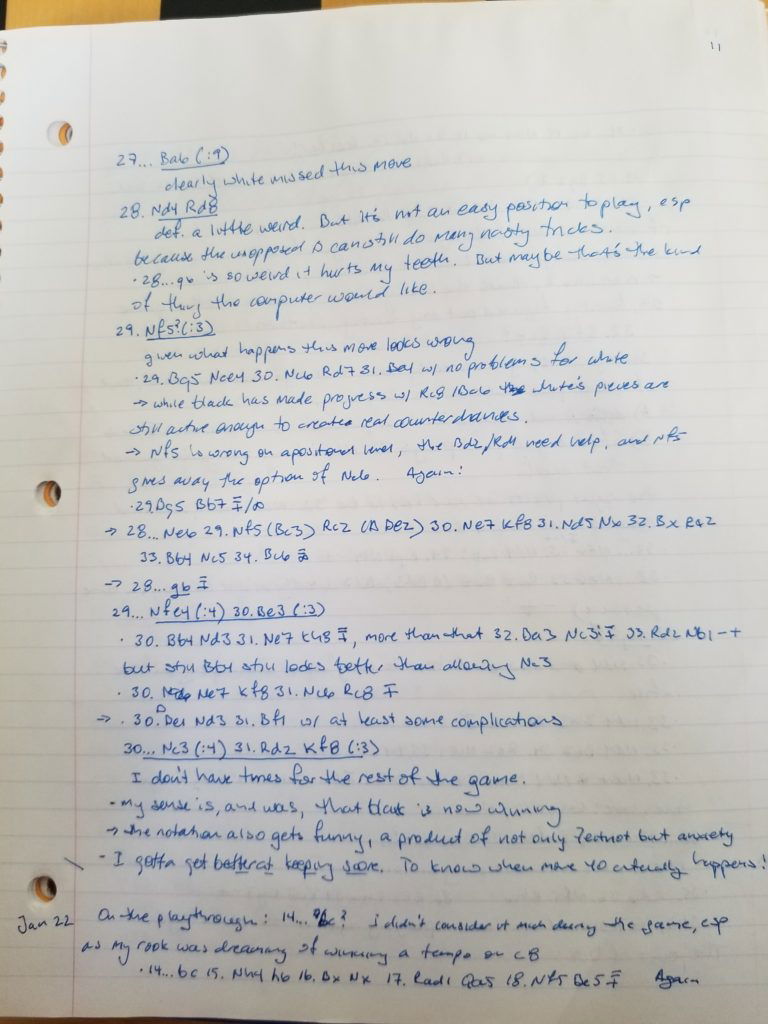 11
27... Ba6 (:9)
clearly white missed this move
28. Nd4 Rd8
def. a little weird. But it's not an easy position to play, esp
because the unopposed B can still do many nasty tricks.
· 28...g6 is so weird it hurts my teeth. But maybe that's the kind
of thing the computer would like.
29. Nf5? (:3)
given what happens this move looks wrong
· 29. Bg5 Nce4 30. Nc6 Rd7 31. Be1 w/ no problems for white
→ while black has made progress w/ Rc8/Ba6 white's pieces are
still active enough to create real counterchances.
→ Nf5 is wrong on a positional level, the Bd2/Rd1 need help, and Nf5
gives away the option of Nc6. Again:
· 29. Bg5 Bb7 ∓/∞
→ 28... Ne6 29. Nf5 (Bc3) Rc2 (Δ De2) 30. Ne7 Kf8 31. Nd5 Nx 32. Bx Ra2
33. Bb4 Nc5 34. Bc6
→ 28... g6 ∓
29... Nfe4 (:4) 30. Be3 (:3)
· 30. Bb4 Nd3 31. Ne7 Kh8 ∓, more than that 32. Da3 Nc3 ∓ 33. Rd2 Nb1 -+
but still Bb4 still looks better than allowing Nc3
· 30. Ne7 Kf8 31. Nc6 Rc8 ∓
→ · 30. De1 Nd3 31. Bf1 w/ at least some complications
30... Nc3 (:4) 31. Rd2 Kf8 (:3)
I don't have times for the rest of the game.
- my sense is, and was, that black is now winning
→ the notation also gets funny, a product of not only Zeitnot but anxiety
- I gotta get better at keeping score. To know when move 40 actually happens!
Jan 22 On the playthrough: 14... bc? I didn't consider it much during the game, esp
as my rook was dreaming of winning a tempo on c8
· 14...bc 15. Nh4 h6 16. Bx Nx 17. Rad1 Qa5 18. Nf5 Be5 ∓ Again